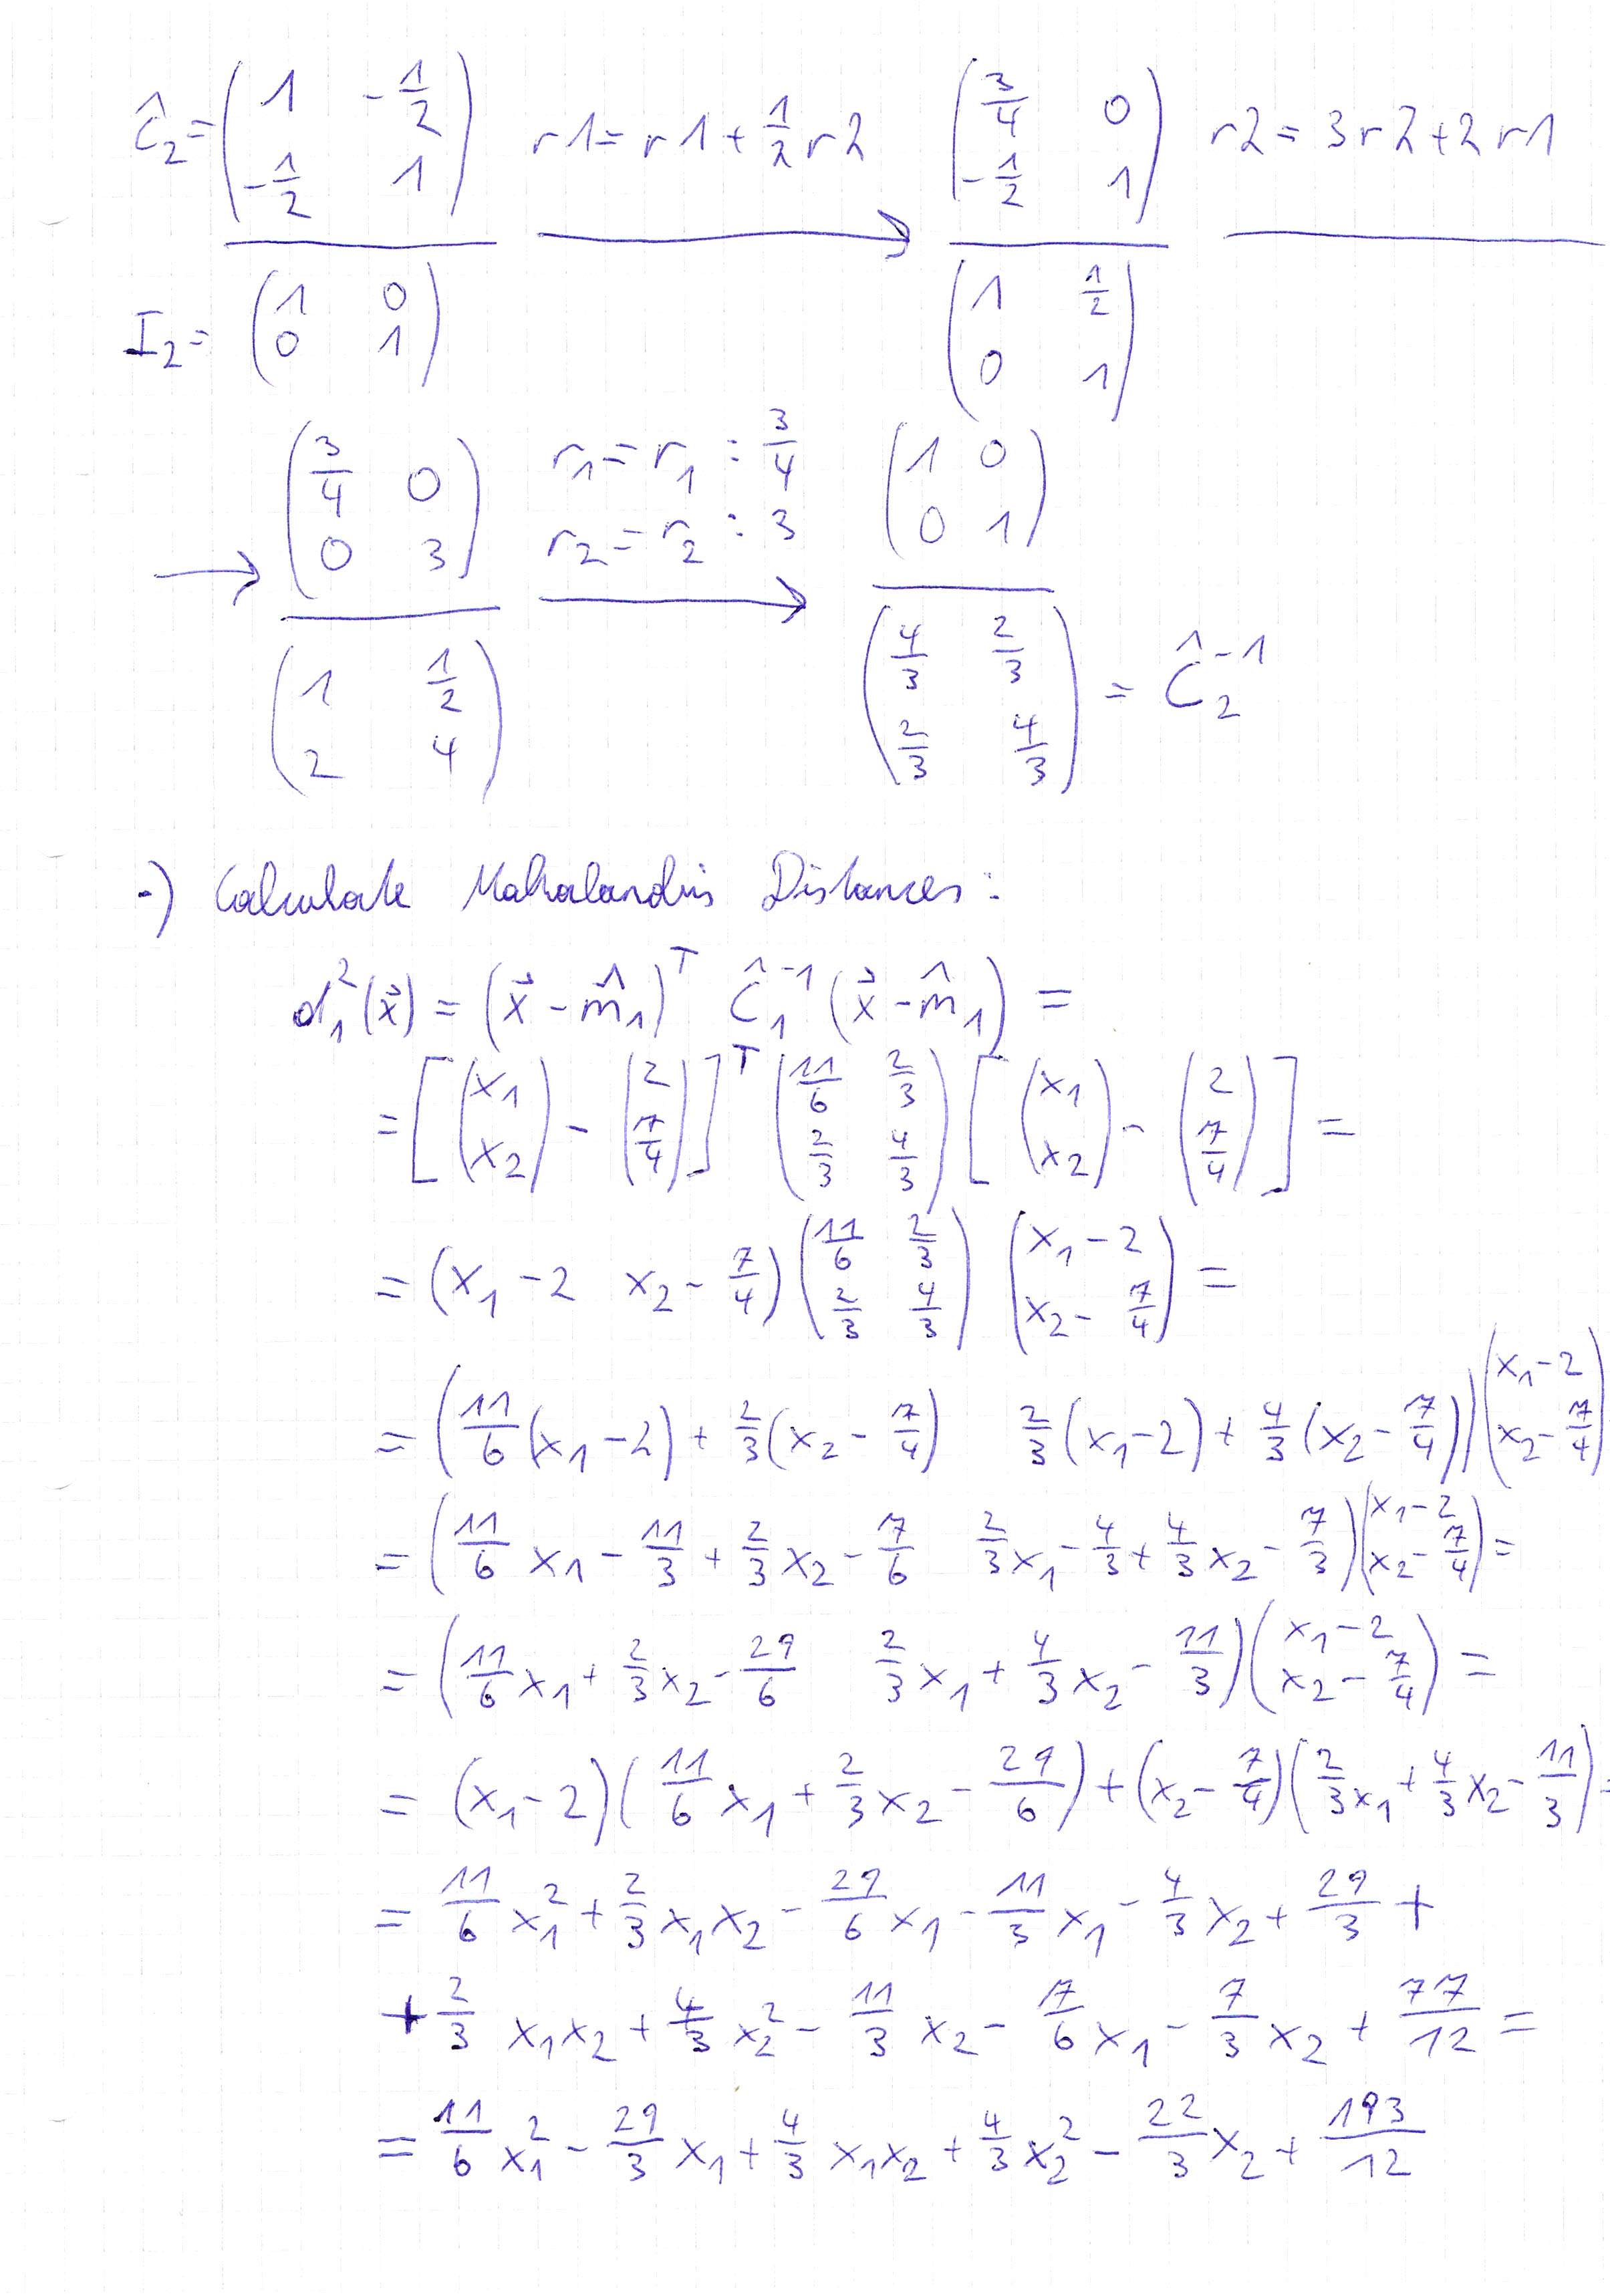 Ĉ₂ = (1 -1/2; -1/2 1) r1 = r1 + 1/2 r2 (3/4 0; -1/2 1) r2 = 3r2 + 2r1
I₂ = (1 0; 0 1) → (1 1/2; 0 1)
→ (3/4 0; 0 3) r₁ = r₁ : 3/4 r₂ = r₂ : 3 → (1 0; 0 1)
(1 1/2; 2 4) (4/3 2/3; 2/3 4/3) = Ĉ₂⁻¹
·) Calculate Mahalanobis Distances:
d₁²(x⃗) = (x⃗ - m̂₁)ᵀ Ĉ₁⁻¹ (x⃗ - m̂₁) =
= [(x₁; x₂) - (2; 7/4)]ᵀ (11/6 2/3; 2/3 4/3) [(x₁; x₂) - (2; 7/4)] =
= (x₁ - 2 x₂ - 7/4) (11/6 2/3; 2/3 4/3) (x₁ - 2; x₂ - 7/4) =
= (11/6 (x₁ - 2) + 2/3 (x₂ - 7/4) 2/3 (x₁ - 2) + 4/3 (x₂ - 7/4)) (x₁ - 2; x₂ - 7/4)
= (11/6 x₁ - 11/3 + 2/3 x₂ - 7/6 2/3 x₁ - 4/3 + 4/3 x₂ - 7/3) (x₁ - 2; x₂ - 7/4) =
= (11/6 x₁ + 2/3 x₂ - 29/6 2/3 x₁ + 4/3 x₂ - 11/3) (x₁ - 2; x₂ - 7/4) =
= (x₁ - 2) (11/6 x₁ + 2/3 x₂ - 29/6) + (x₂ - 7/4) (2/3 x₁ + 4/3 x₂ - 11/3) =
= 11/6 x₁² + 2/3 x₁x₂ - 29/6 x₁ - 11/3 x₁ - 4/3 x₂ + 29/3 +
+ 2/3 x₁x₂ + 4/3 x₂² - 11/3 x₂ - 7/6 x₁ - 7/3 x₂ + 77/12 =
= 11/6 x₁² - 29/3 x₁ + 4/3 x₁x₂ + 4/3 x₂² - 22/3 x₂ + 193/12